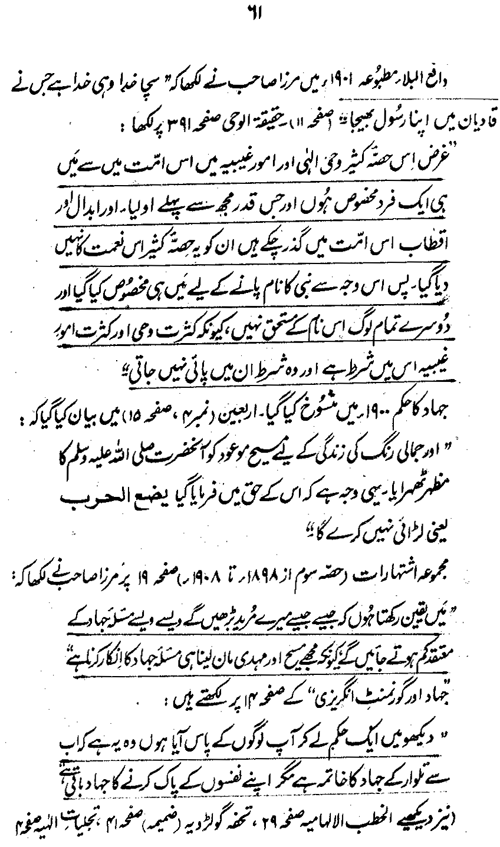 ۶۱
دافع البلاء مطبوعہ ۱۹۰۱ء میں مرزا صاحب نے لکھا کہ ”سچا خدا وہی خدا ہے جس نے
قادیان میں اپنا رسول بھیجا“ (صفحہ ۱۱)۔ حقیقۃ الوحی صفحہ ۳۹۱ پر لکھا :
”غرض اِس حصۂ کثیر وحیِ الٰہی اور امورِ غیبیہ میں اس امّت میں سے مَیں
ہی ایک فرد مخصوص ہُوں اور جس قدر مجھ سے پہلے اولیاء اور ابدال اور
اقطاب اس امّت میں گذر چکے ہیں ان کو یہ حصّہ کثیر اس نعمت کا نہیں
دیا گیا۔ پس اس وجہ سے نبی کا نام پانے کے لیے مَیں ہی مخصوص کیا گیا اور
دُوسرے تمام لوگ اس نام کے مستحق نہیں، کیونکہ کثرتِ وحی اور کثرتِ امورِ
غیبیہ اس میں شرط ہے اور وہ شرط ان میں پائی نہیں جاتی“
جہاد کا حکم ۱۹۰۰ء میں منسُوخ کیا گیا۔ اربعین (نمبر ۴، صفحہ ۱۵) میں بیان کیا گیا کہ :
”اور جمالی رنگ کی زندگی کے لیے مسیح موعود کو آنحضرت صلی اللہ علیہ وسلم کا
مظہر ٹھہرایا۔ یہی وجہ ہے کہ اس کے حق میں فرمایا گیا یضع الحرب
یعنی لڑائی نہیں کرے گا“
مجموعہ اشتہارات (حصّہ سوم از ۱۸۹۸ء تا ۱۹۰۸ء) صفحہ ۱۹ پر مرزا صاحب نے لکھا کہ:
”مَیں یقین رکھتا ہُوں کہ جیسے جیسے میرے مُرید بڑھیں گے ویسے ویسے مسئلۂ جہاد کے
معتقد کم ہوتے جائیں گے کیونکہ مجھے مسیح اور مہدی مان لینا ہی مسئلۂ جہاد کا اِنکار کرنا ہے“
”جہاد اور گورنمنٹ انگریزی“ کے صفحہ ۱۴ پر لکھتے ہیں:
”دیکھو میں ایک حکم لے کر آپ لوگوں کے پاس آیا ہوں وہ یہ ہے کہ اب
سے تلوار کے جہاد کا خاتمہ ہے مگر اپنے نفسوں کے پاک کرنے کا جہاد باقی ہے“
(نیز دیکھیے الخطب الالہامیہ صفحہ ۲۹، تحفہ گولڑویہ (ضمیمہ) صفحہ ۴۱، تجلیاتِ الٰہیہ صفحہ ۴